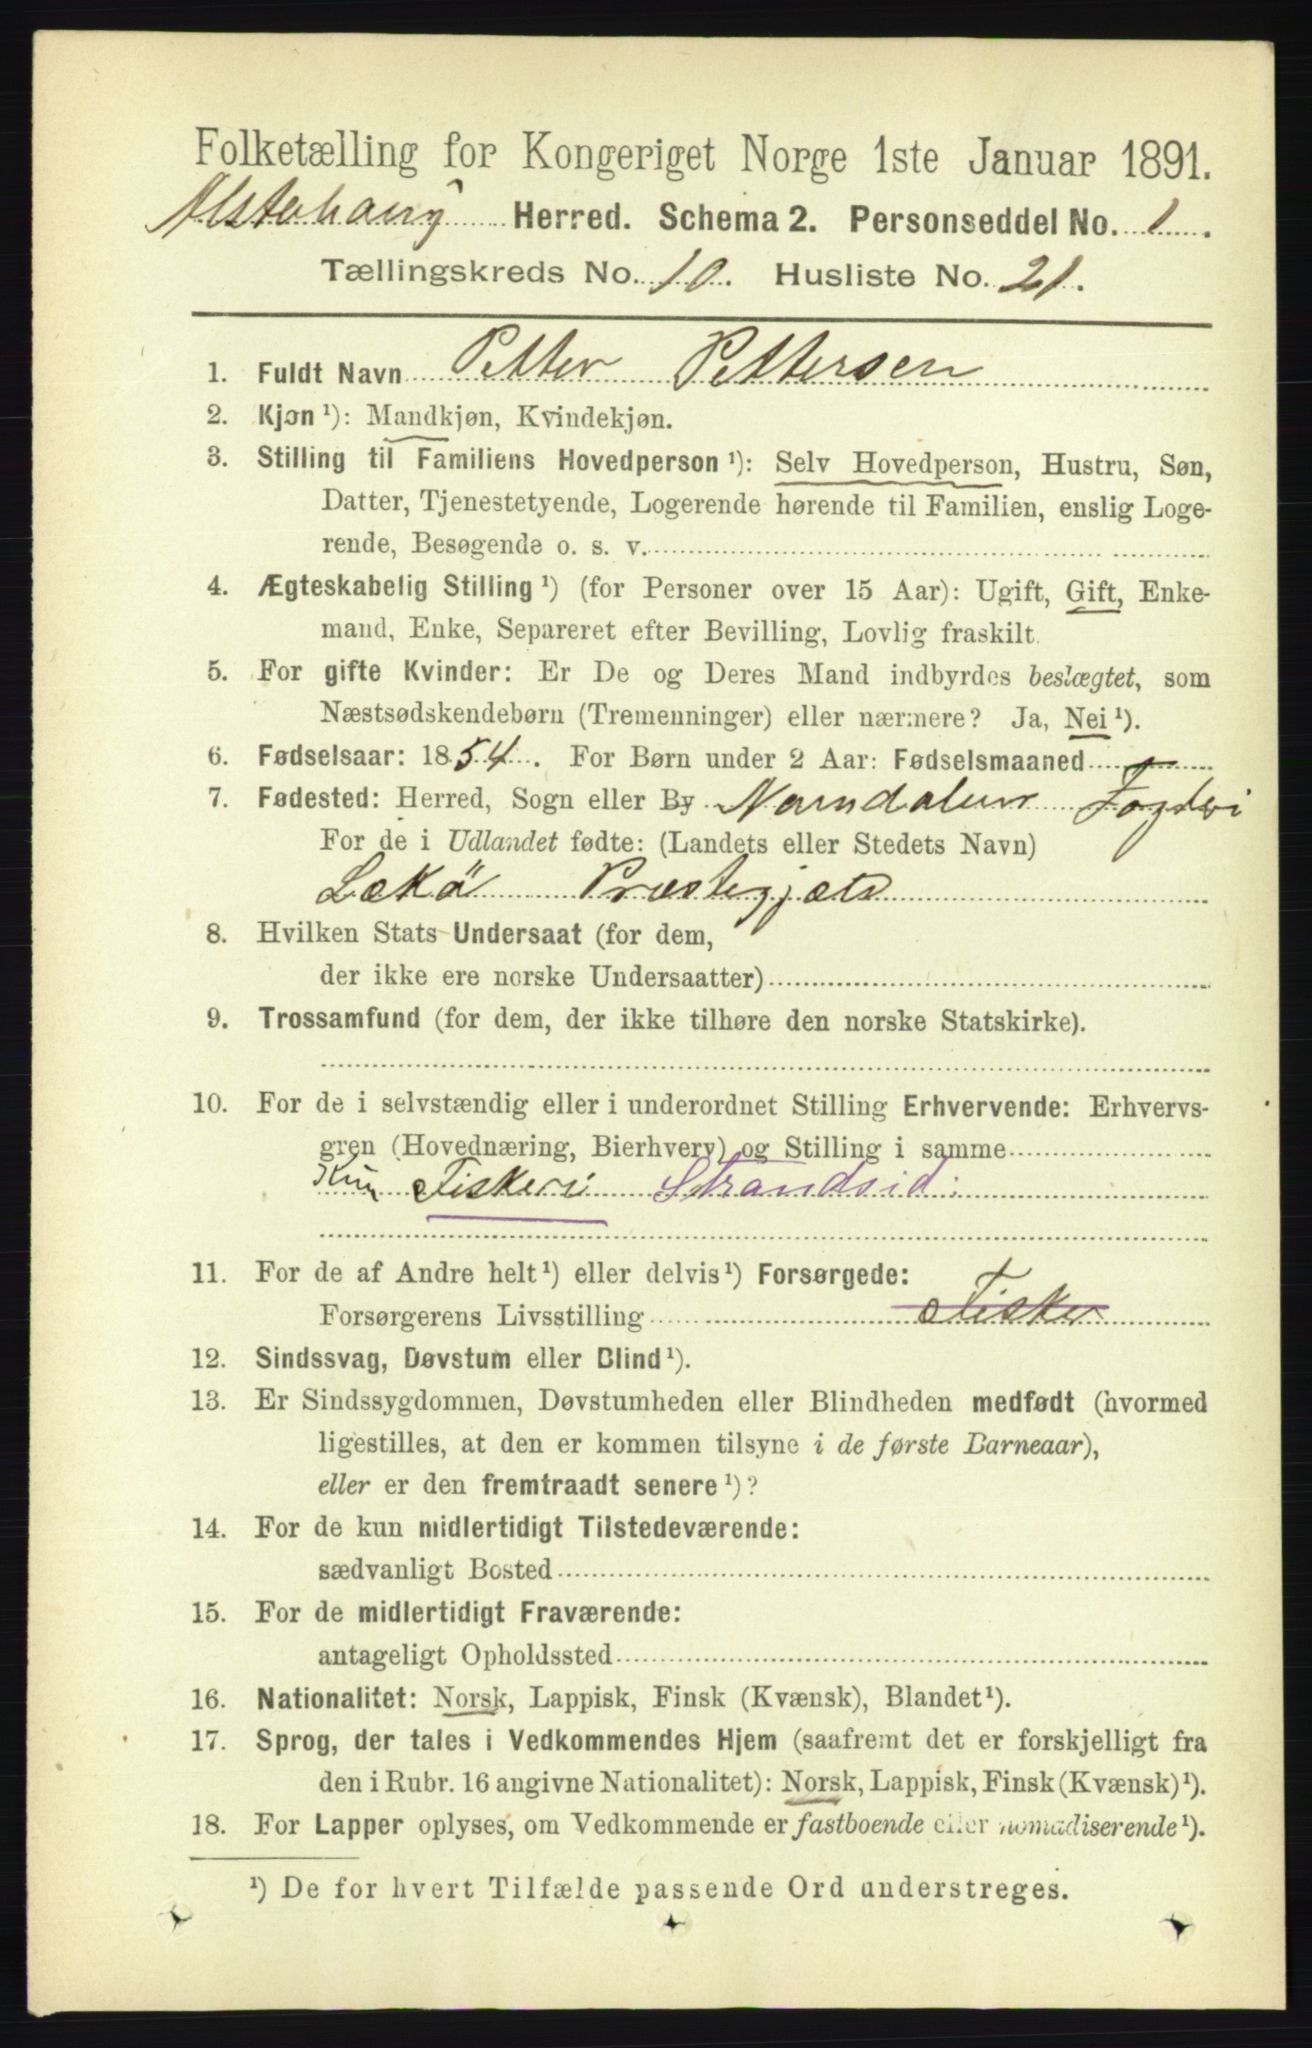 Folketælling for Kongeriget Norge 1ste Januar 1891.
Alstahaug Herred. Schema 2. Personseddel No. 1.
Tællingskreds No. 10. Husliste No. 21.
1. Fuldt Navn Petter Pettersen
2. Kjøn¹): Mandkjøn, Kvindekjøn.
3. Stilling til Familiens Hovedperson¹): Selv Hovedperson, Hustru, Søn,
Datter, Tjenestetyende, Logerende hørende til Familien, enslig Loge-
rende, Besøgende o. s. v.
4. Ægteskabelig Stilling¹) (for Personer over 15 Aar): Ugift, Gift, Enke-
mand, Enke, Separeret efter Bevilling, Lovlig fraskilt.
5. For gifte Kvinder: Er De og Deres Mand indbyrdes beslægtet, som
Næstsødskendebørn (Tremenninger) eller nærmere? Ja, Nei¹).
6. Fødselsaar: 1854. For Børn under 2 Aar: Fødselsmaaned
7. Fødested: Herred, Sogn eller By Namdalens Fogderi
For de i Udlandet fødte: (Landets eller Stedets Navn)
Lekö Præstegjæld
8. Hvilken Stats Undersaat (for dem,
der ikke ere norske Undersaatter)
9. Trossamfund (for dem, der ikke tilhøre den norske Statskirke).
10. For de i selvstændig eller i underordnet Stilling Erhvervende: Erhvervs-
gren (Hovednæring, Bierhverv) og Stilling i samme
Kun Fiskeri Strandsid:
11. For de af Andre helt¹) eller delvis¹) Forsørgede:
Forsørgerens Livsstilling Fisker
12. Sindssvag, Døvstum eller Blind¹).
13. Er Sindssygdommen, Døvstumheden eller Blindheden medfødt (hvormed
ligestilles, at den er kommen tilsyne i de første Barneaar),
eller er den fremtraadt senere¹)?
14. For de kun midlertidigt Tilstedeværende:
sædvanligt Bosted
15. For de midlertidigt Fraværende:
antageligt Opholdssted
16. Nationalitet: Norsk, Lappisk, Finsk (Kvænsk), Blandet¹).
17. Sprog, der tales i Vedkommendes Hjem (saafremt det er forskjelligt fra
den i Rubr. 16 angivne Nationalitet): Norsk, Lappisk, Finsk (Kvænsk)¹).
18. For Lapper oplyses, om Vedkommende er fastboende eller nomadiserende¹).
¹) De for hvert Tilfælde passende Ord understreges.